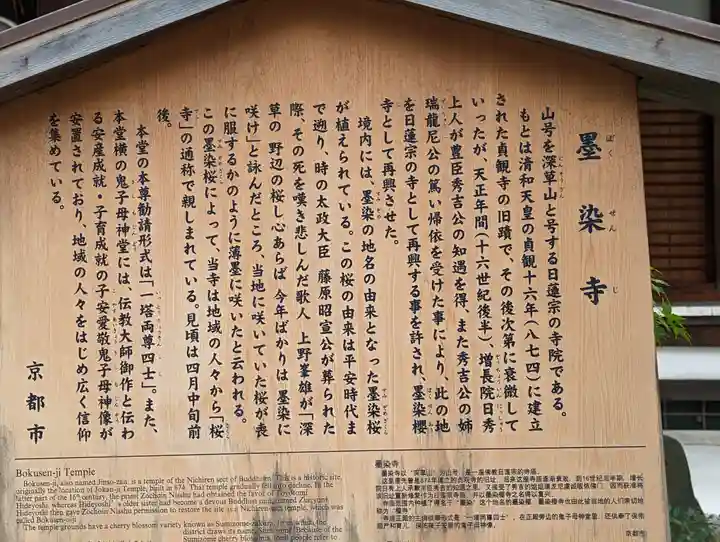 墨染寺
ぼくせんじ
山号を深草山と号する日蓮宗の寺院である。
もとは清和天皇の貞観十六年(八七四)に建立
された貞観寺の旧蹟で、その後次第に衰微して
いったが、天正年間(十六世紀後半)、増長院日秀
上人が豊臣秀吉公の知遇を得、また秀吉公の姉
瑞龍尼公の篤い帰依を受けた事により、此の地
を日蓮宗の寺として再興する事を許され、墨染櫻
寺として再興させた。
境内には、墨染の地名の由来となった墨染桜
が植えられている。この桜の由来は平安時代ま
で遡り、時の太政大臣 藤原昭宣公が葬られた
際、その死を嘆き悲しんだ歌人 上野峯雄が「深
草の 野辺の桜し心あらば 今年ばかりは 墨染に
咲け」と詠んだところ、当地に咲いていた桜が喪
に服するかのように薄墨に咲いたと云われる。
この墨染桜によって、当寺は地域の人々から「桜
寺」の通称で親しまれている。見頃は四月中旬前
後。
本堂の本尊勧請形式は「一塔両尊四士」。また、
本堂横の鬼子母神堂には、伝教大師御作と伝わ
る安産成就・子育成就の子安愛敬鬼子母神像が
安置されており、地域の人々をはじめ広く信仰
を集めている。
京都市
Bokusen-ji Temple
Bokusen-ji, also named Jinso-zan, is a temple of the Nichiren sect of Buddhism. This is a historic site,
originally the location of Jokan-ji Temple, built in 874. That temple gradually fell into decline. In the
latter part of the 16th century, the priest Zochoin Nisshu had obtained the favor of Toyotomi
Hideyoshi, whereas Hideyoshi's older sister had become a devout Buddhist nun named Zuiryuni.
Hideyoshi then gave Zochoin Nisshu permission to restore the site as a Nichiren-sect temple, which was
called Bokusen-oji.
The temple grounds have a cherry blossom variety known as Sumizome-zakura,
district draws its name Sumizome. Because of the
Sumizome cherry blossoms, local people refer to
墨染寺
京都市